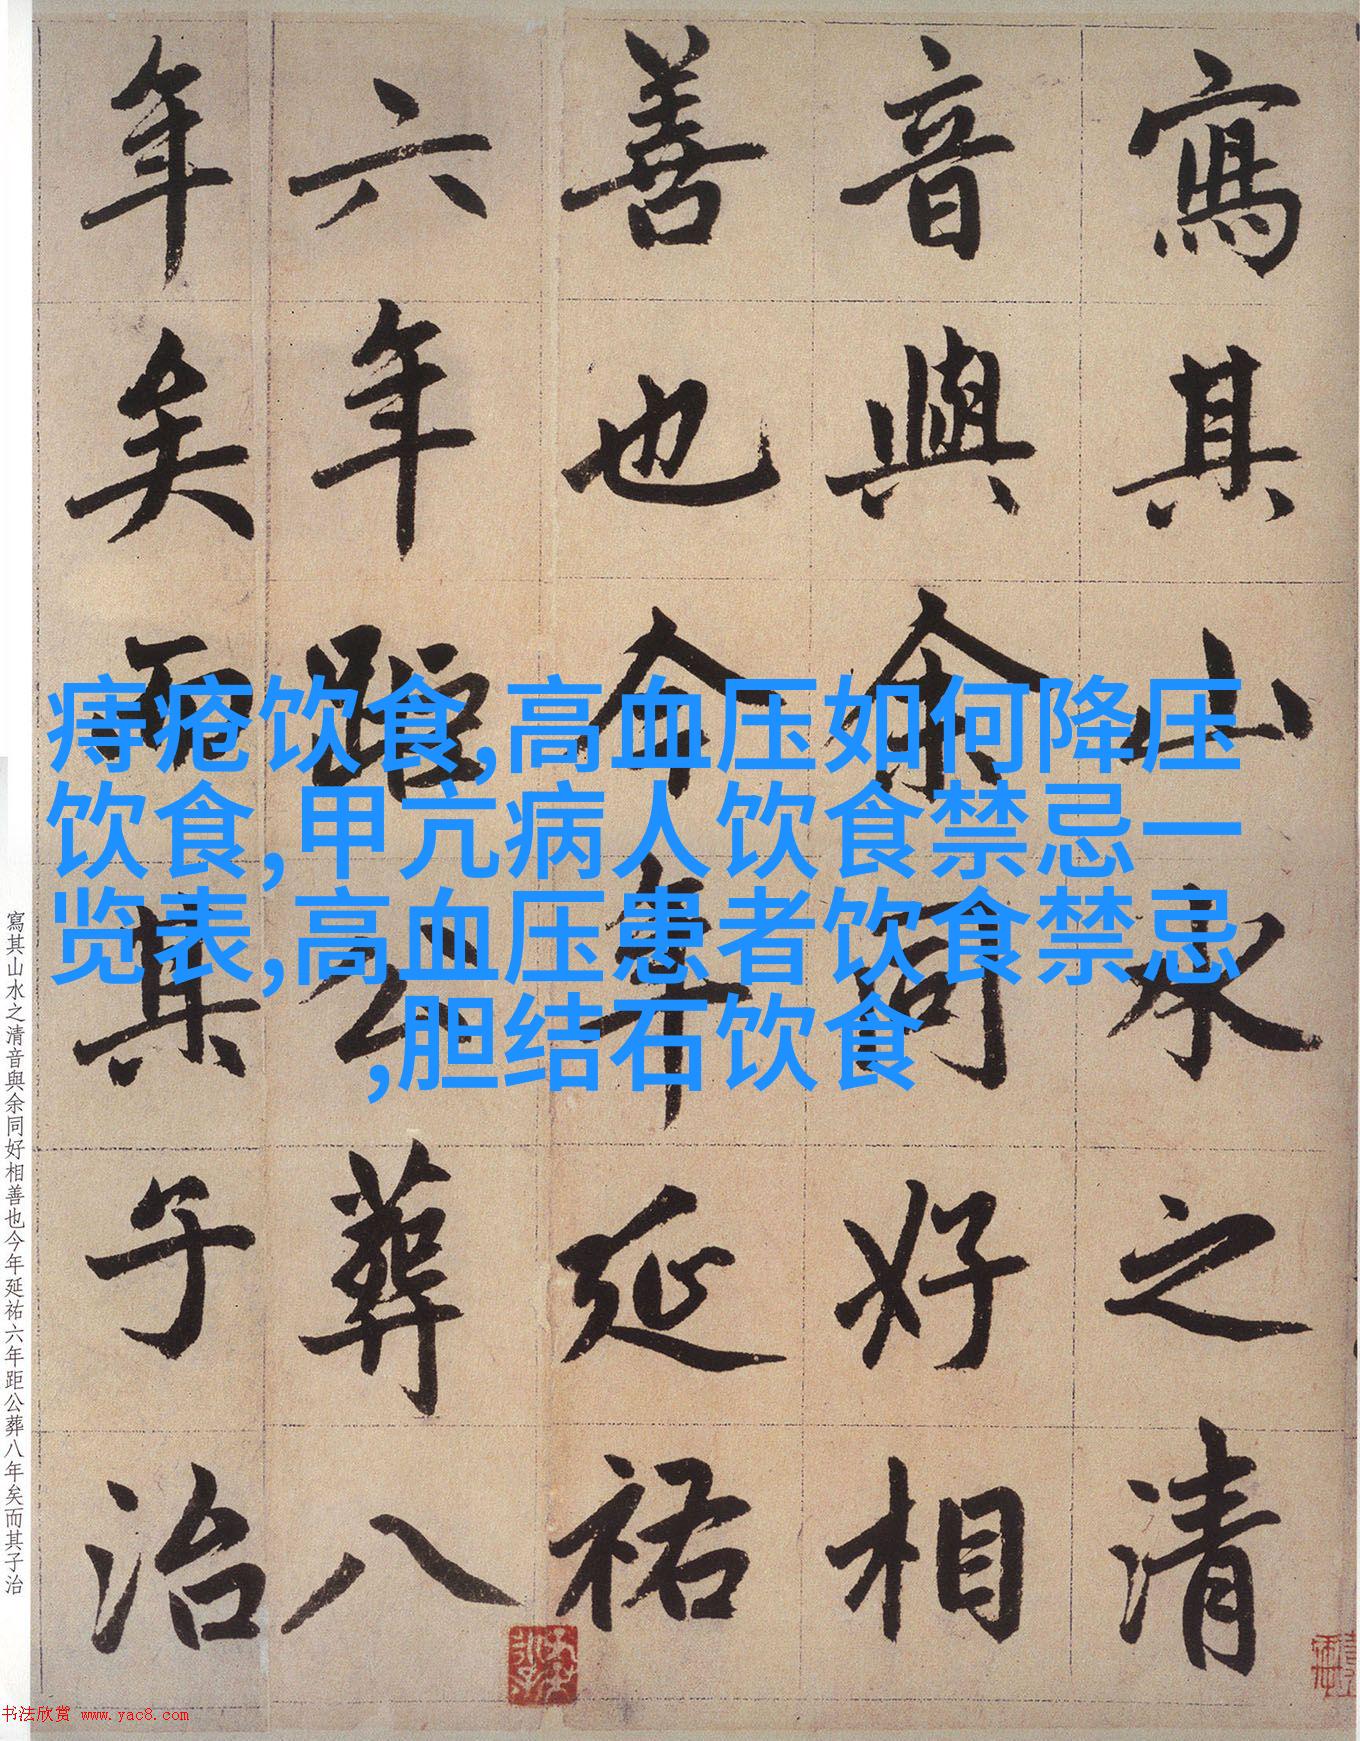 寫其山水之清
音與余同好相
善也今年延祐
六年距公葬八
年矣而其子治
痔疮饮食,高血压如何降压
饮食,甲亢病人饮食禁忌一
览表,高血压患者饮食禁忌
,胆结石饮食
寫其山水之清音與余同好相善也今年延祐六年距公葬八年矣而其子治
书法欣赏 www.yac8.com